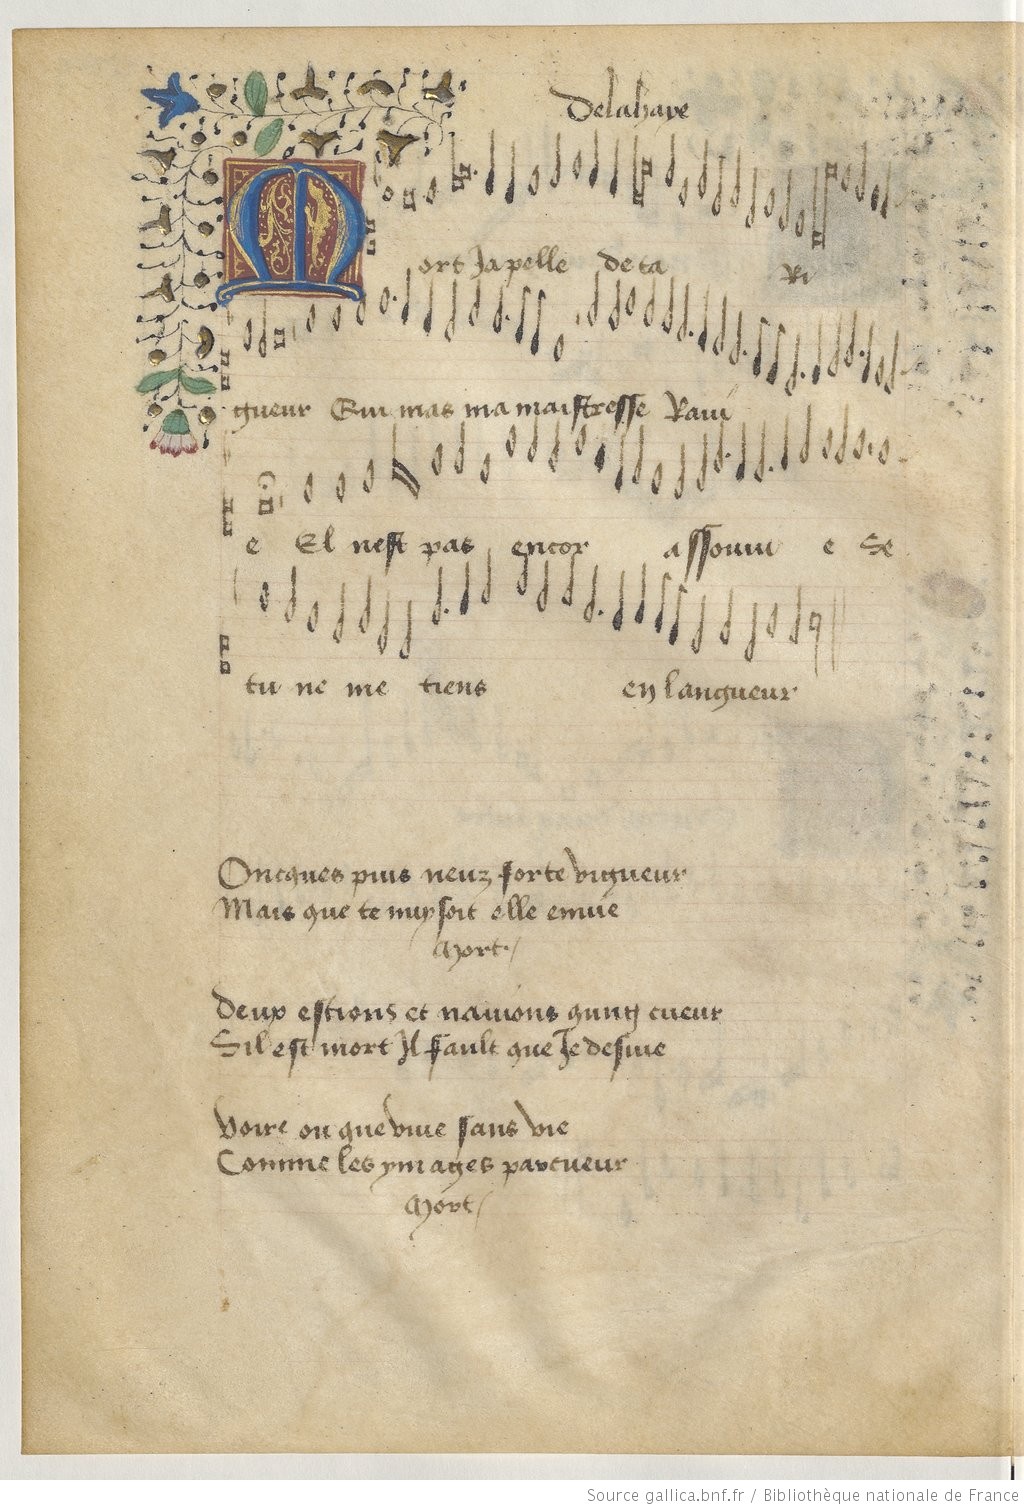 Delahaye
Mort Japelle de ta Ri
gueur Qui mas ma maistresse Ravi
e El nest pas encor assouvi e Se
tu ne me tiens en langueur
Oncques puis neuz forte vigueur
Mais que te nuysoit elle envie
Mort /
Deux estions et navions qung cueur
Sil est mort Il fault que Je desvie
Voire ou que vive sans vie
Comme les ymages par cueur
Mort /
Source gallica.bnf.fr / Bibliothèque nationale de France